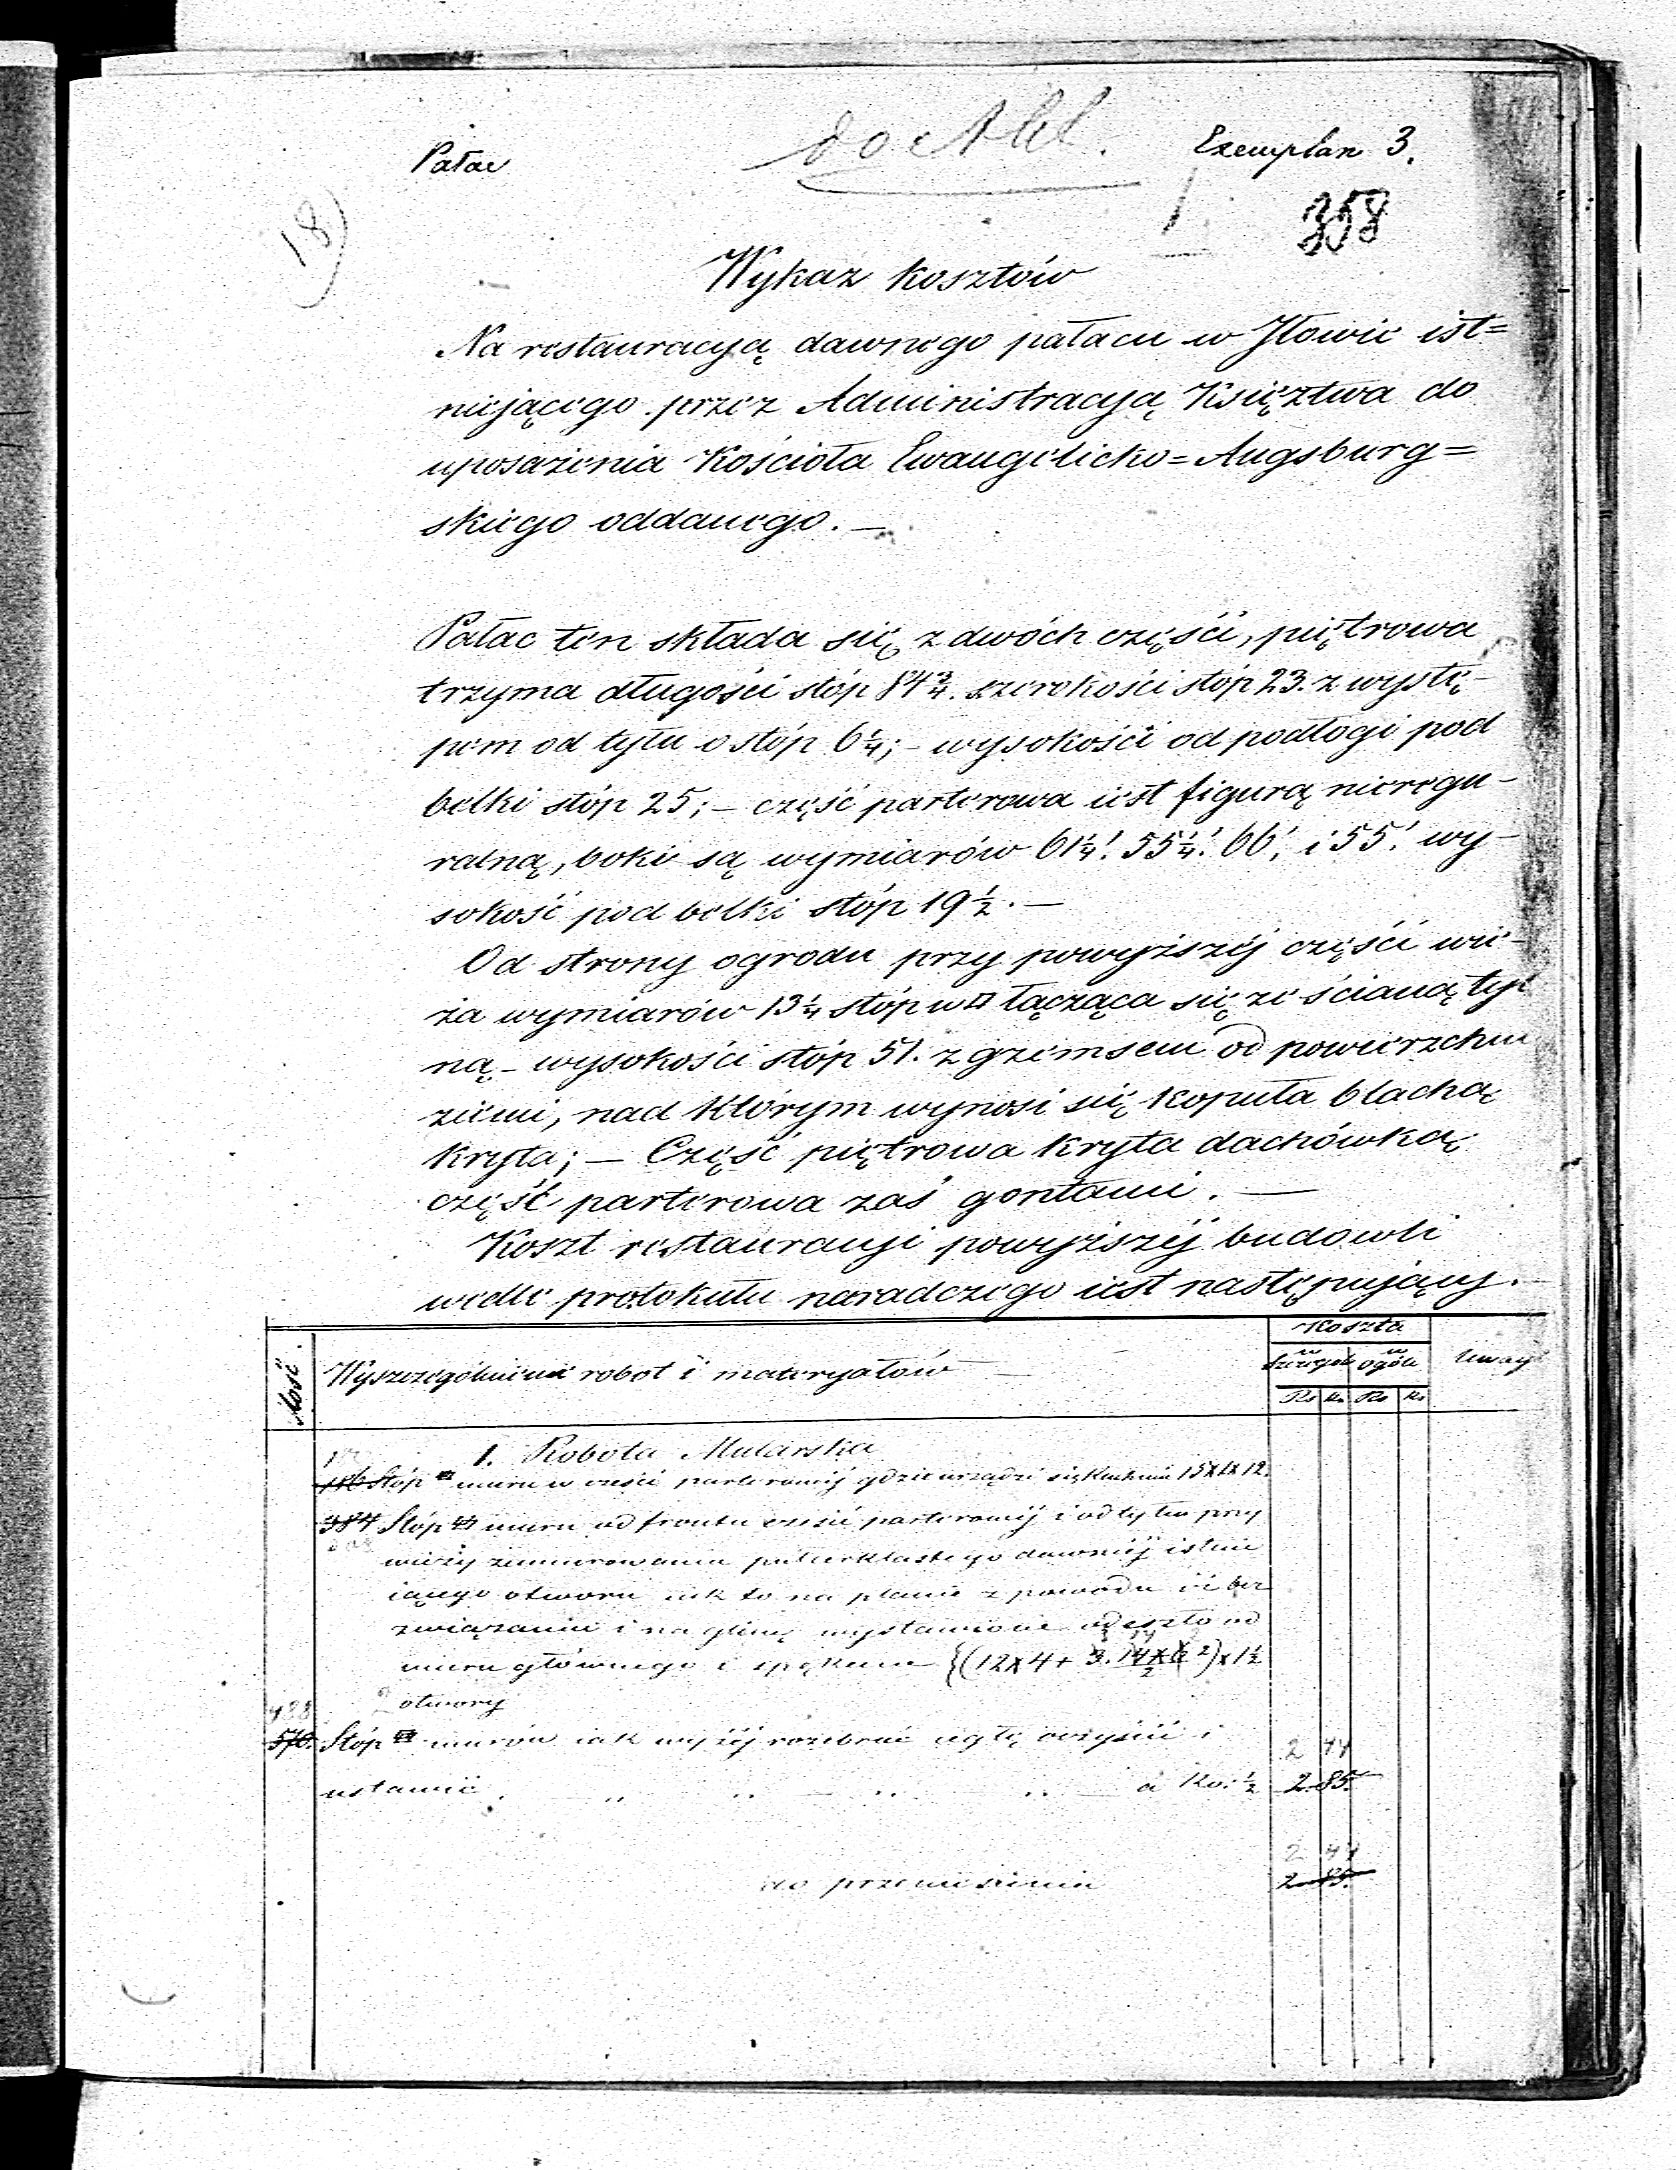 Pałac
Exemplarz 3.
18)
358
Wykaz kosztów
Na restauracyą dawnego pałacu w Iłowie ist=
niejącego przez Administracyą Księztwa do
uposażenia Kościoła Ewangelicko=Augsburg=
skiego oddanego. —
Pałac ten składa się z dwóch części, piętrowa
trzyma długości stóp 84 3/4. szerokości stóp 23. z wystę-
pem od tyłu o stóp 6 1/4; - wysokości od podłogi pod
belki stóp 25; — część parterowa iest figurą nieregu-
ralną, boki są wymiarów 61 1/4' 55 1/4' 66' i 55' wy-
sokość pod belki stóp 19 1/2. —
Od strony ogrodu przy powyższéj części wie-
ża wymiarów 13 1/4 stóp w □ łącząca się ze ścianą tyl
ną - wysokości stóp 51. z gzemsem od powierzchni
ziemi, nad którym wynosi się kopuła blachą
kryta; — Część piętrowa kryta dachówką
część parterowa zaś gontami. —
Koszt restauracyi powyższéj budowli
wedle protokułu naradczego iest następujący.
Ilość
Wyszczególnienie robot i materyałów
Koszta
w szczegół
w ogóle
Uwagi
Rs K. Rs K.
1. Robota Mularska
186 Stóp muru w części parterowéj gdzie urządzi się kuchnia 15x1x12.
384 Stóp muru od frontu części parterowéj i od tyłu przy
wieży zamurowania dawniéj istnie
iącego otworu iak to na planie z powodu iż bez
związania i na glinę wystawione odeszło od
muru głównego i spękane {(12x4+ 3.14x6²/2)x1 1/2
2 otwory
488
570. Stóp murów iak wyżéj rozebrać cegłę oczyścić i
2 44
ustawić " " " " a Ko: 1/2 2 85.
2 44
do przeniesienia 2 85.